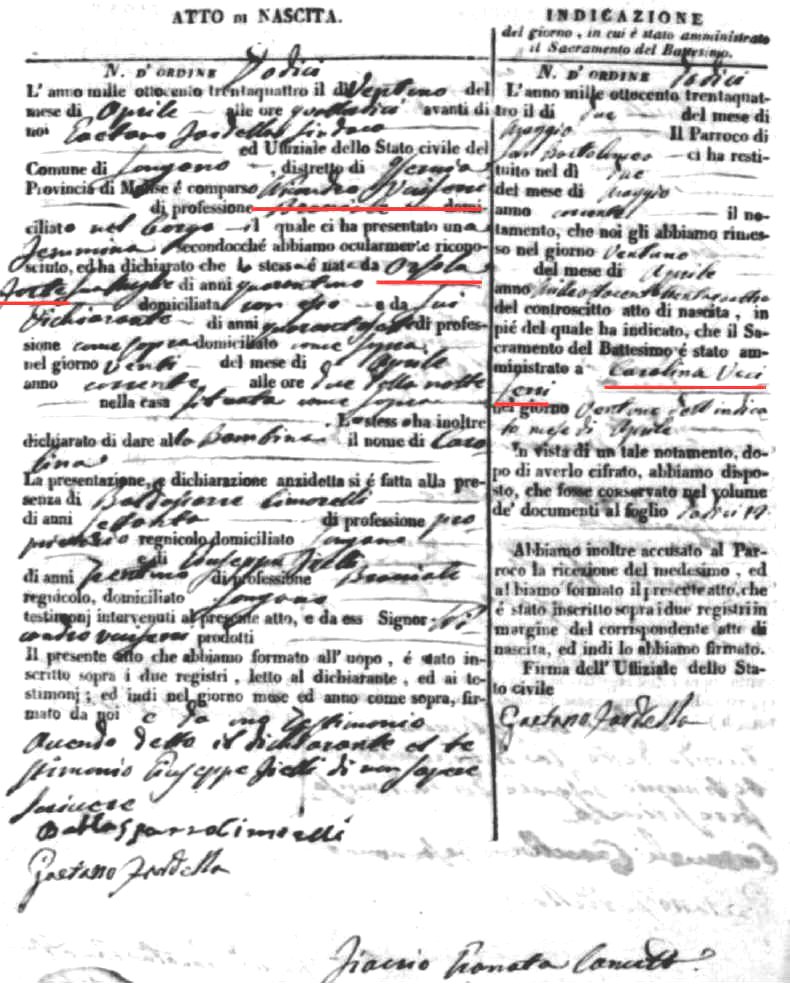 ATTO DI NASCITA.
N. D'ORDINE Dodici
L'anno mille ottocento trentaquattro il dì Ventuno del
mese di Aprile alle ore quattordici avanti di
noi Gaetano Fardella Sindaco
ed Uffiziale dello Stato civile del
Comune di Longano, distretto di Isernia
Provincia di Molise é comparso
di professione domi-
ciliato nel borgo il quale ci ha presentato una
secondocché abbiamo ocularmente ricono-
sciuto, ed ha dichiarato che la stessa é nata da Orsola
Forte sua moglie di anni
domiciliata con esso e da lui
dichiarante di anni di profes-
sione come sopra domiciliato come sopra
nel giorno venti del mese di Aprile
anno corrente alle ore due della notte
nella casa situata come sopra
Lo stesso ha inoltre
dichiarato di dare alla Bambina il nome di Caro
lina
La presentazione, e dichiarazione anzidetta si é fatta alla pre-
senza di Baldassarre Cimorelli
di anni di professione pro
prietario regnicolo domiciliato Longano
e di Giuseppe
di anni di professione Bracciale
regnicolo, domiciliato Longano
testimonj intervenuti al presente atto, e da esso Signor
prodotti
Il presente atto che abbiamo formato all'uopo, é stato in-
scritto sopra i due registri, letto al dichiarante, ed ai te-
stimonj; ed indi nel giorno mese ed anno come sopra, fir-
mato da noi e da un testimonio
avendo detto il dichiarante ed il te
stimonio Giuseppe di non sapere
scrivere
Baldassarre Cimorelli
Gaetano Fardella
INDICAZIONE
del giorno, in cui é stato amministrato
il Sacramento del Battesimo.
N. D'ORDINE Dodici
L'anno mille ottocento trentaquat-
tro il dì due del mese di
Maggio Il Parroco di
San Bartolomeo ci ha resti-
tuito nel dì due
del mese di Maggio
anno corrente il no-
tamento, che noi gli abbiamo rimes-
so nel giorno Ventuno
del mese di Aprile
anno
del controscitto atto di nascita, in
pié del quale ha indicato, che il Sa-
cramento del Battesimo é stato am-
ministrato a Carolina
nel giorno Ventuno dell'indica
to mese di Aprile
In vista di un tale notamento, do-
po di averlo cifrato, abbiamo dispo-
sto, che fosse conservato nel volume
de' documenti al foglio
Abbiamo inoltre accusato al Par-
roco la ricezione del medesimo, ed
abbiamo formato il presente atto, che
é stato inscritto sopra i due registri in
margine del corrispondente atto di
nascita, ed indi lo abbiamo firmato.
Firma dell'Uffiziale dello Sta-
to civile
Gaetano Fardella